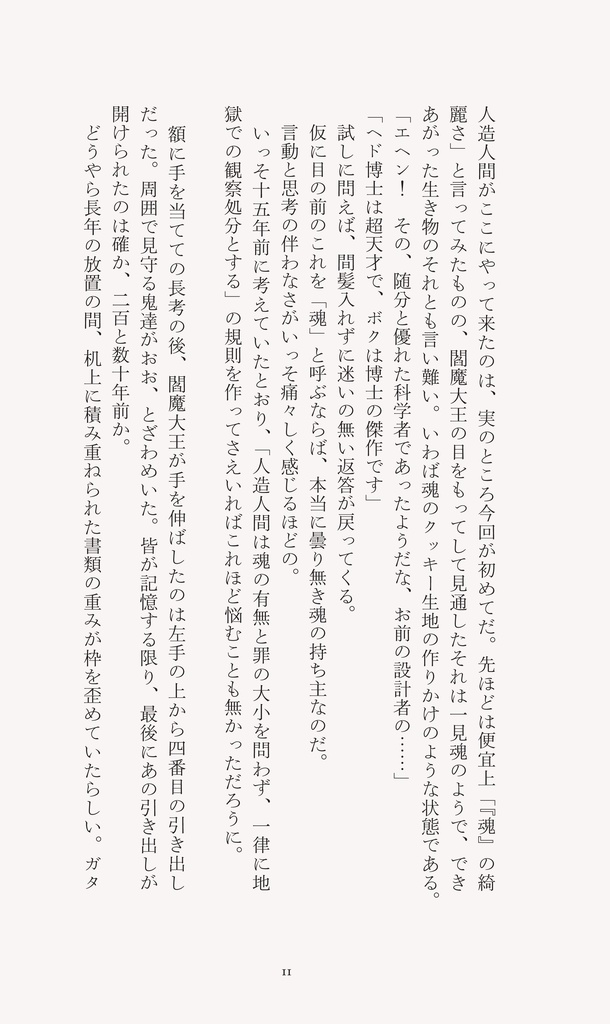 人造人間がここにやって来たのは、実のところ今回が初めてだ。先ほどは便宜上「『魂』の綺
麗さ」と言ってみたものの、閻魔大王の目をもってして見通したそれは一見魂のようで、でき
あがった生き物のそれとも言い難い。いわば魂のクッキー生地の作りかけのような状態である。
「エヘン！　その、随分と優れた科学者であったようだな、お前の設計者の……」
「ヘド博士は超天才で、ボクは博士の傑作です」
試しに問えば、間髪入れずに迷いの無い返答が戻ってくる。
仮に目の前のこれを「魂」と呼ぶならば、本当に曇り無き魂の持ち主なのだ。
言動と思考の伴わなさがいっそ痛々しく感じるほどの。
いっそ十五年前に考えていたとおり、「人造人間は魂の有無と罪の大小を問わず、一律に地
獄での観察処分とする」の規則を作ってさえいればこれほど悩むことも無かっただろうに。
額に手を当てての長考の後、閻魔大王が手を伸ばしたのは左手の上から四番目の引き出し
だった。周囲で見守る鬼達がおお、とざわめいた。皆が記憶する限り、最後にあの引き出しが
開けられたのは確か、二百と数十年前か。
どうやら長年の放置の間、机上に積み重ねられた書類の重みが枠を歪めていたらしい。ガタ
11